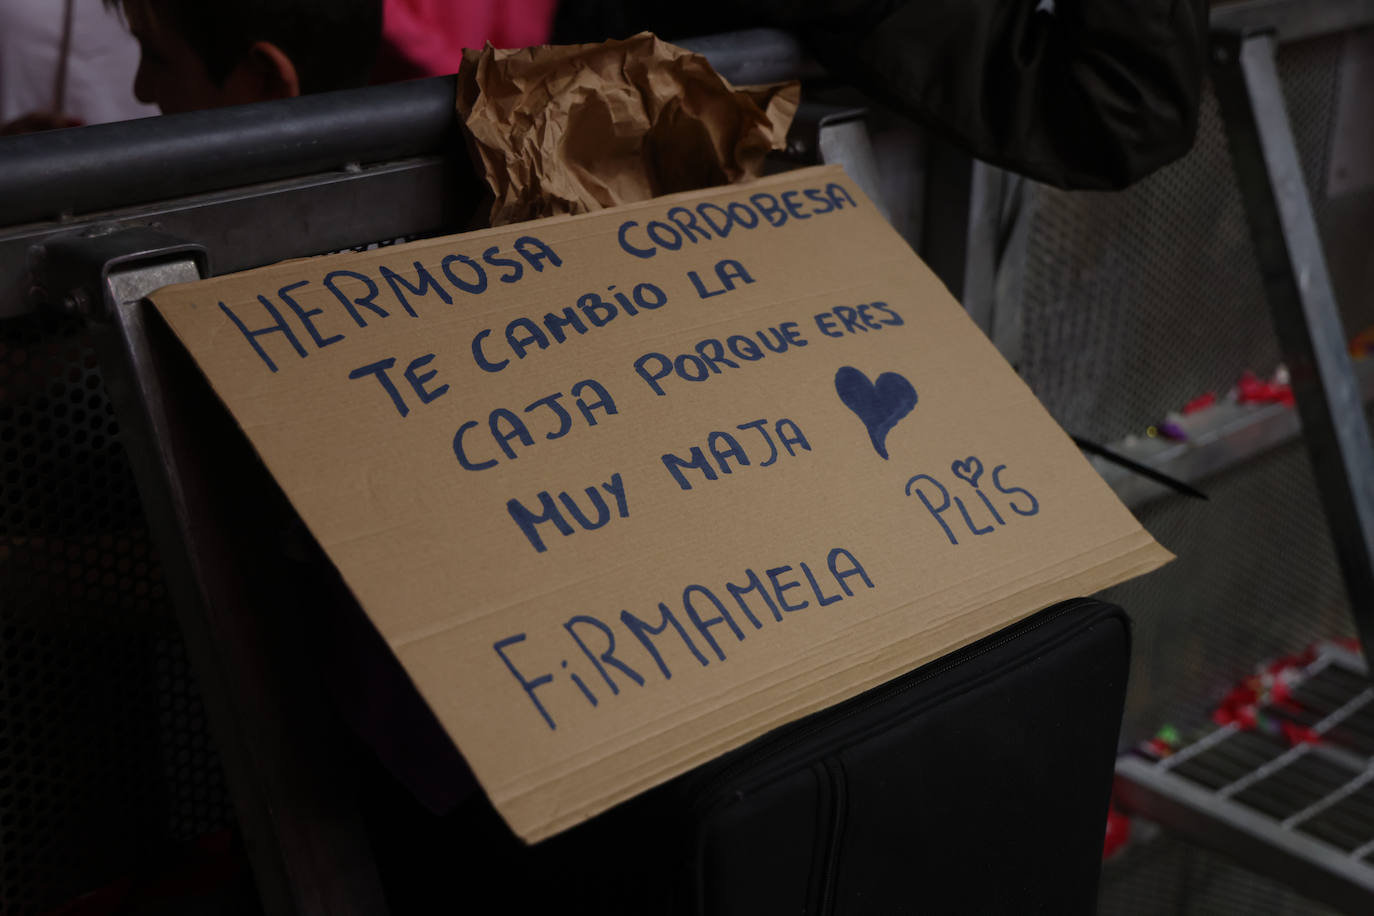 HERMOSA CORDOBESA
TE CAMBIO LA
CAJA PORQUE ERES
MUY MAJA
FiRMAMELA PLiS